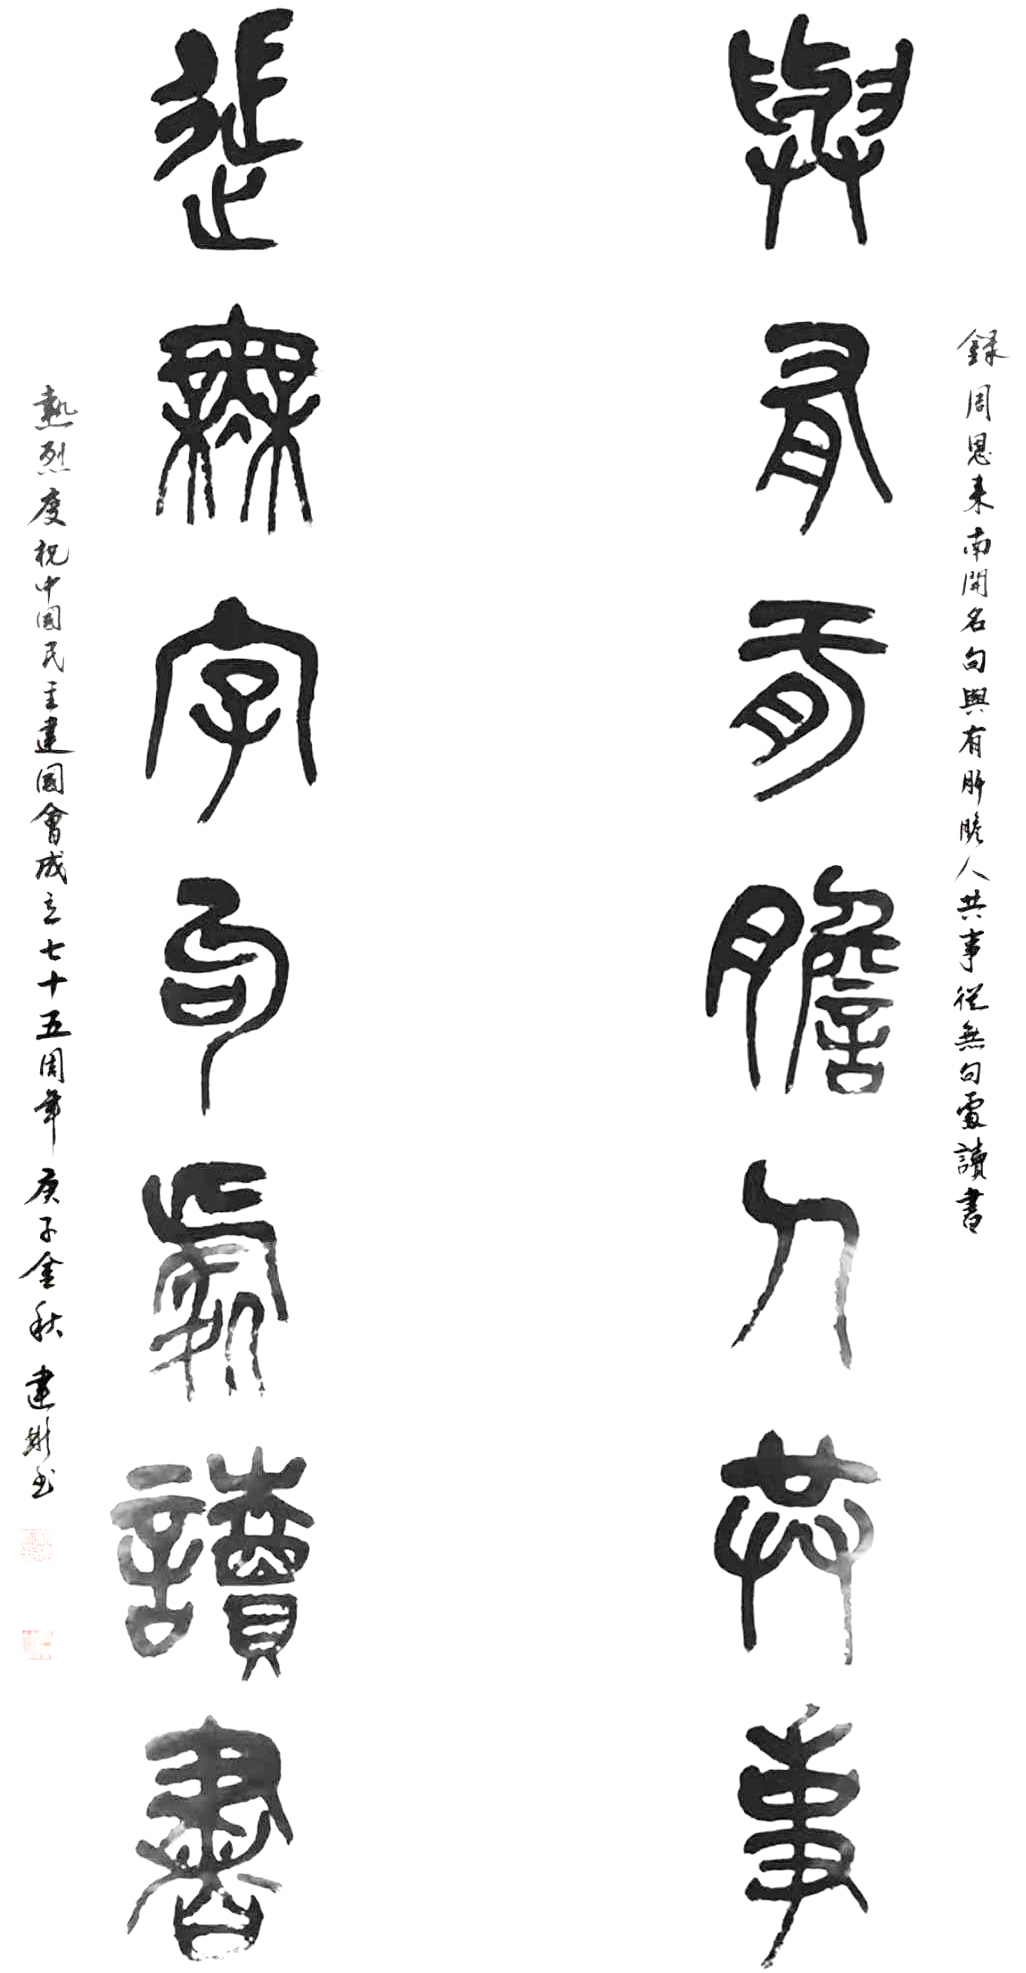 録周恩来南開名句與有肝膽人共事從無句處讀書
與有肝膽人共事
從無字句處讀書
熱烈慶祝中國民主建國會成立七十五周年 庚子金秋 建 书